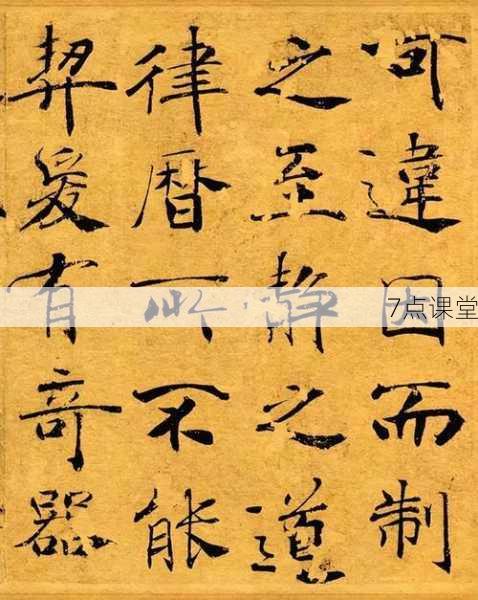 可違因而制
之至静之道
律曆所不能
契爰有奇器
7点课堂